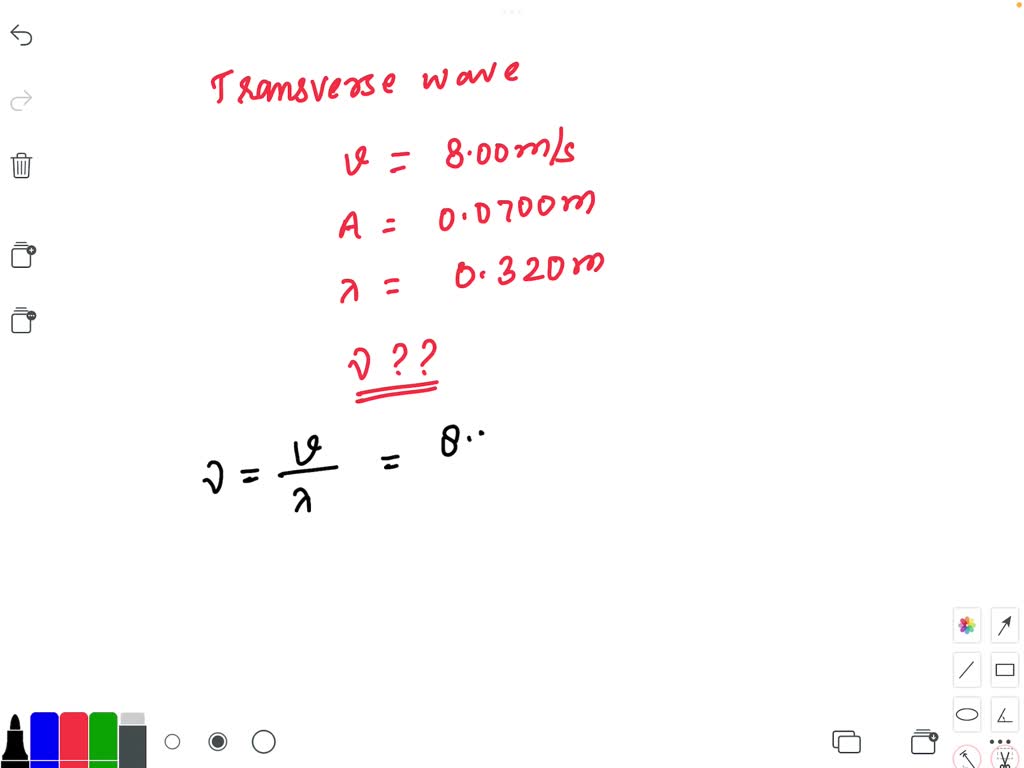 Transverse wave
v = 8.00 m/s
A = 0.0700 m
λ = 0.320 m
ν ??
ν = v/λ = 8..